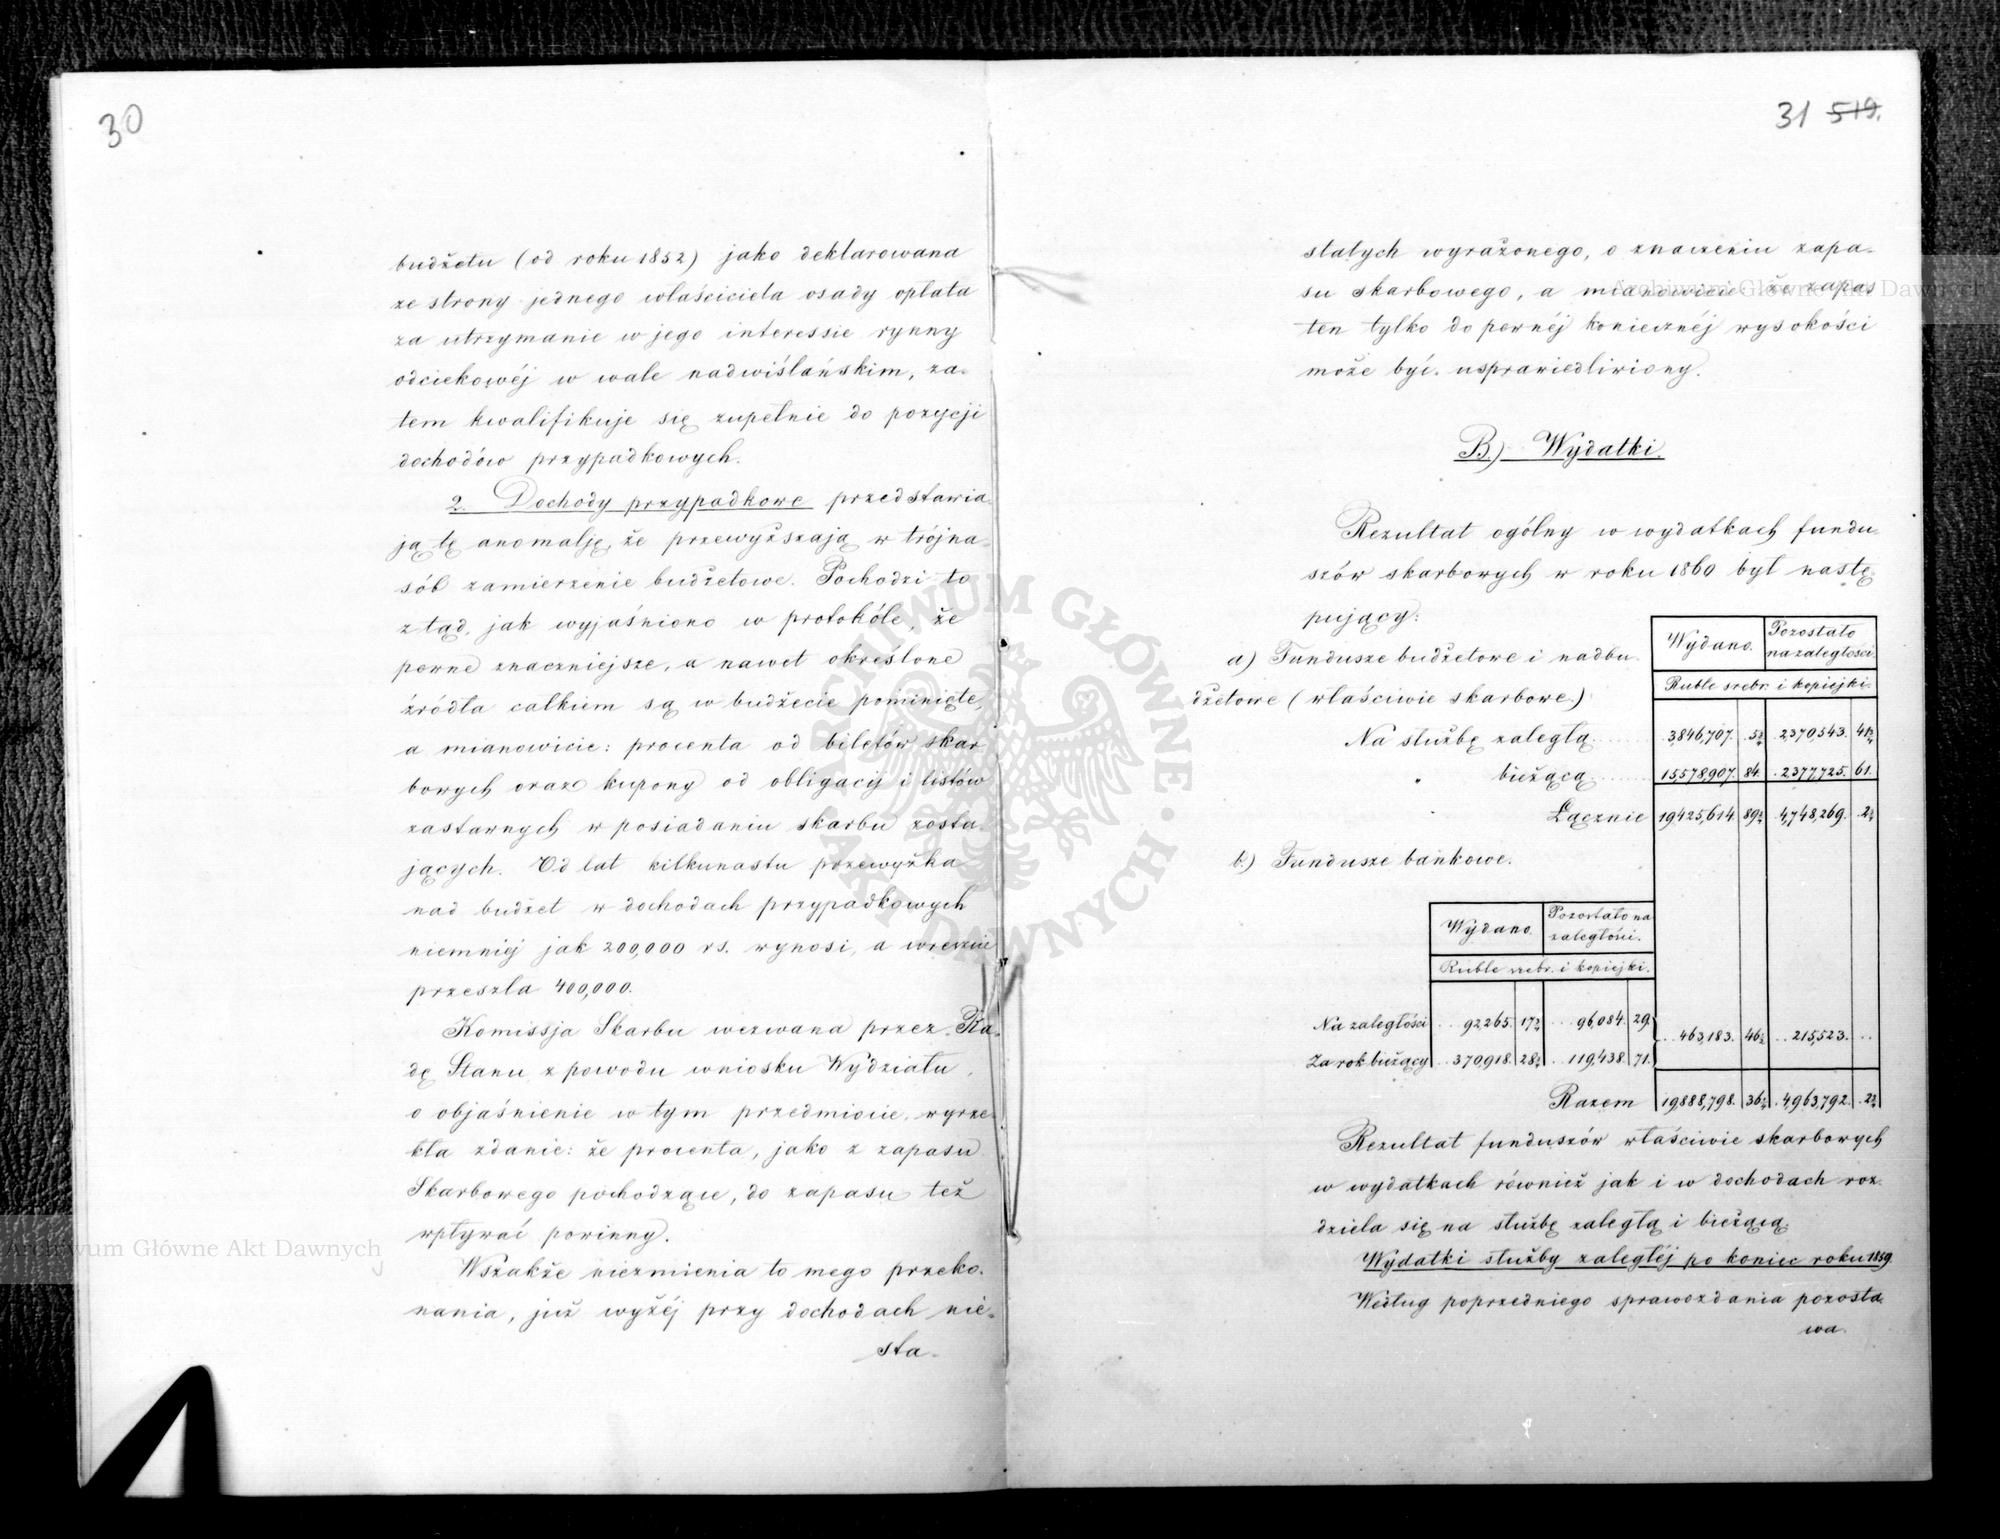 30
budżetu (od roku 1852) jako deklarowana
ze strony jednego właściciela osady opłata
za utrzymanie w jego interessie rynny
odciekowéj w wale nadwiślańskim, za-
tem kwalifikuje się zupełnie do pozycji
dochodów przypadkowych.
2. Dochody przypadkowe przedstawia-
ją tę anomalję, że przewyższają w trójna-
sób zamierzenie budżetowe. Pochodzi to
ztąd, jak wyjaśniono w protokóle, że
pewne znaczniejsze, a nawet określone
źródła całkiem są w budżecie pominięte,
a mianowicie: procenta od biletów skar-
bowych oraz kupony od obligacij i listów
zastawnych w posiadaniu skarbu zosta-
jących. Od lat kilkunastu przewyżka
nad budżet w dochodach przypadkowych
niemniéj jak 200,000 rs. wynosi, a wreszcie
przeszła 400,000.
Komissja Skarbu wezwana przez Ra-
dę Stanu z powodu wniosku Wydziału,
o objaśnienie w tym przedmiocie, wyrze-
kła zdanie: że procenta, jako z zapasu
Skarbowego pochodzące, do zapasu też
wpływać powinny.
Wszakże niezmienia to mego przeko-
nania, już wyżéj przy dochodach nie-
sta-
31 519.
stałych wyrażonego, o znaczeniu zapa-
su skarbowego, a mianowicie że zapas
ten tylko do pewnéj koniecznéj wysokości
może być usprawiedliwiony.
B.) Wydatki.
Rezultat ogólny w wydatkach fundu-
szów skarbowych w roku 1860 był nastę-
pujący:
Wydano. Pozostało na zaległości.
Ruble srebr. i kopiejki.
a) Fundusze budżetowe i nadbu-
dżetowe (właściwie skarbowe)
Na służbę zaległą 3,846,707. 5½ 2,370,543. 41½
bieżącą 15,578,907. 84. 2,377,725. 61.
Łącznie 19,425,614. 89½ 4,748,269. 2½
b.) Fundusze bankowe.
Wydano. Pozostało na zaległości.
Ruble srebr. i kopiejki.
Na zaległości 92,265. 17½ 96,084. 29.
463,183. 46½ 215,523.
Za rok bieżący 370,918. 28½ 119,438. 71.
Razem 19,888,798. 36½ 4,963,792. 2½
Rezultat funduszów właściwie skarbowych
w wydatkach również jak i w dochodach roz-
dziela się na służbę zaległą i bieżącą.
Wydatki służby zaległéj po koniec roku 1859.
Według poprzedniego sprawozdania pozosta-
wa-
ARCHIWUM GŁÓWNE AKT DAWNYCH
Archiwum Główne Akt Dawnych
Archiwum Główne Akt Dawnych